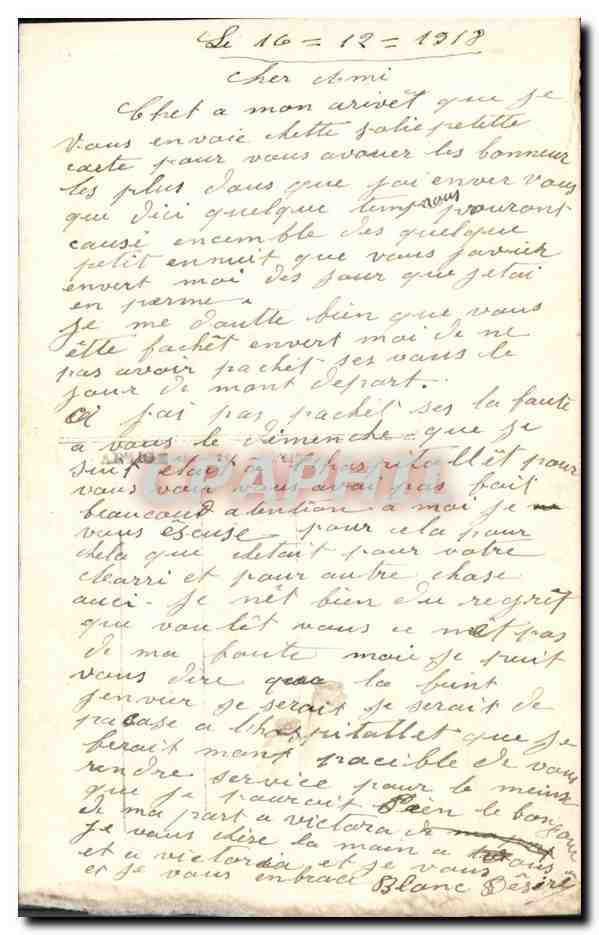 Le 16 = 12 = 1918
Cher Ami
Chet a mon arivêt que je
vous envoie chette jolie petitte
carte pour vous avouer les bonneur
les plus dous que jai enver vous
que dici quelque temp nous pouront
causé encemble des quelque
petit ennuit que vous
envert moi des jour que jetai
en perme.
Je me doutte bien que vous
êtte fachêt envert moi de ne
pas avoir pachêt ses vous le
jour de mont depart.
Ci jai pas pachêt ses la faute
a vous le dimenche que je
suit etait a lhospitallêt pour
vous voir vous avai pas fait
beaucoud atention a moi je
vous éscuse pour cela pour
chela que chetait pour votre
Marri et pour autre chose
auci. Je nêt bien du regrêt
que voulêt vous ce nêt pas
de ma faute moi je puit
vous dire que la
jenvier je serait je serait de
pacase a lhospitallet que je
ferait mont pocible de vous
rendre service pour le meiux
que je pourait Bien le bonjour
de ma part a victora de ma part
je vous séré la main a vous
et a victoria et je vous
et je vous enbrace Blanc Désiré
CPAPHIL